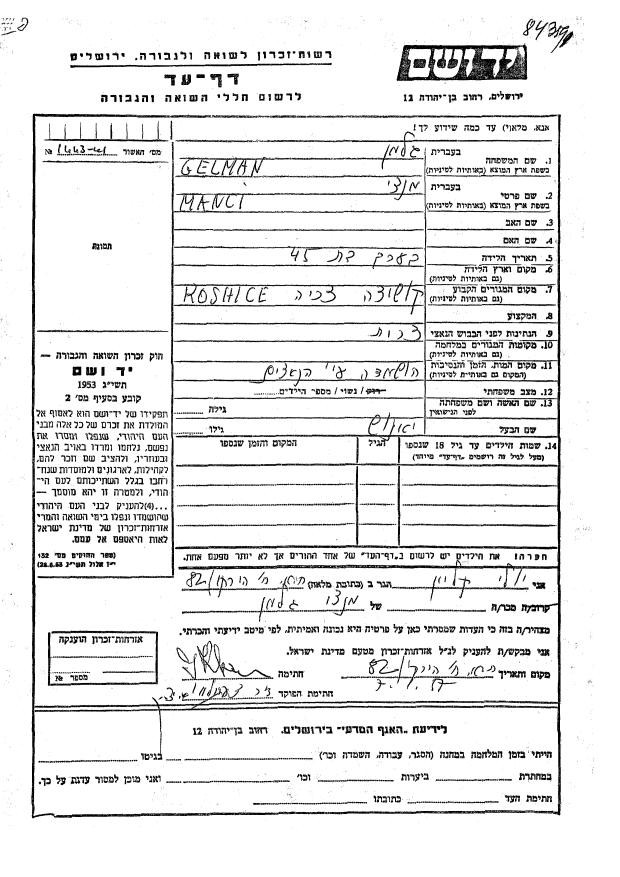 84319
רשות־זכרון לשואה ולגבורה, ירושלים
דף־עד
לרשום חללי השואה והגבורה
יד ושם
ירושלים, רחוב בן־יהודה 12
אנא, מלא(י) עד כמה שידוע לך!
מס׳ האשור №
תמונה
1. שם המשפחה
בשפת ארץ המוצא (באותיות לטיניות)
בעברית גלמן
GELMAN
2. שם פרטי
בשפת ארץ המוצא (באותיות לטיניות)
בעברית מנצי
MANCI
3. שם האב
4. שם האם
5. תאריך הלידה בערך בת 45
6. מקום וארץ הלידה
(גם באותיות לטיניות)
7. מקום המגורים הקבוע
(גם באותיות לטיניות)
KOSHICE
8. המקצוע
9. הנתינות לפני הכבוש הנאצי
10. מקומות המגורים במלחמה
(גם באותיות לטיניות)
11. מקום המות, הזמן והנסיבות
(המקום גם באותיות לטיניות)
הושמדה ע״י הנאצים
12. מצב משפחתי רוק/נשוי/ מספר הילדים
13. שם האשה ושם משפחתה
לפני הנישואין
גילה
שם הבעל
גילו
14. שמות הילדים עד גיל 18 שנספו
(מעל לגיל זה רושמים ״דף־עד״ מיוחד)
הגיל
המקום והזמן שנספו
חוק זכרון השואה והגבורה —
יד ושם
תשי״ג 1953
קובע בסעיף מס׳ 2
תפקידו של יד־ושם הוא לאסוף אל
המולדת את זכרם של כל אלה מבני
העם היהודי, שנפלו ומסרו את
נפשם, נלחמו ומרדו באויב הנאצי
ובעוזריו, ולהציב שם וזכר להם,
לקהילות, לארגונים ולמוסדות שנח־
רבו בגלל השתייכותם לעם הי־
הודי, ולמטרה זו יהא מוסמך —
...(4)להעניק לבני העם היהודי
שהושמדו ונפלו בימי השואה והמרי
אזרחות־זכרון של מדינת ישראל
לאות היאספם אל עמם.
(ספר החוקים מס׳ 132
י״ז אלול תשי״ג 28.8.53)
הערה: את הילדים יש לרשום ב״דף־העד״ של אחד ההורים אך לא יותר מפעם אחת.
אני קליין הגר ב (כתובת מלאה)
קרוב/ה מכר/ה של מנצי גלמן
מצהיר/ה בזה כי העדות שמסרתי כאן על פרטיה היא נכונה ואמיתית, לפי מיטב ידיעתי והכרתי.
אני מבקש/ת להעניק לנ״ל אזרחות־זכרון מטעם מדינת ישראל.
מקום ותאריך חתימה
חתימת הפוקד
אזרחות־זכרון הוענקה
מספר №
לידיעת ״האגף המדעי״ בירושלים, רחוב בן־יהודה 12
הייתי בזמן המלחמה במחנה (הסגר, עבודה, השמדה וכו׳) בגיטו
במחתרת ביערות וכו׳ ואני מוכן למסור עדות על כך.
חתימת העד כתובתו